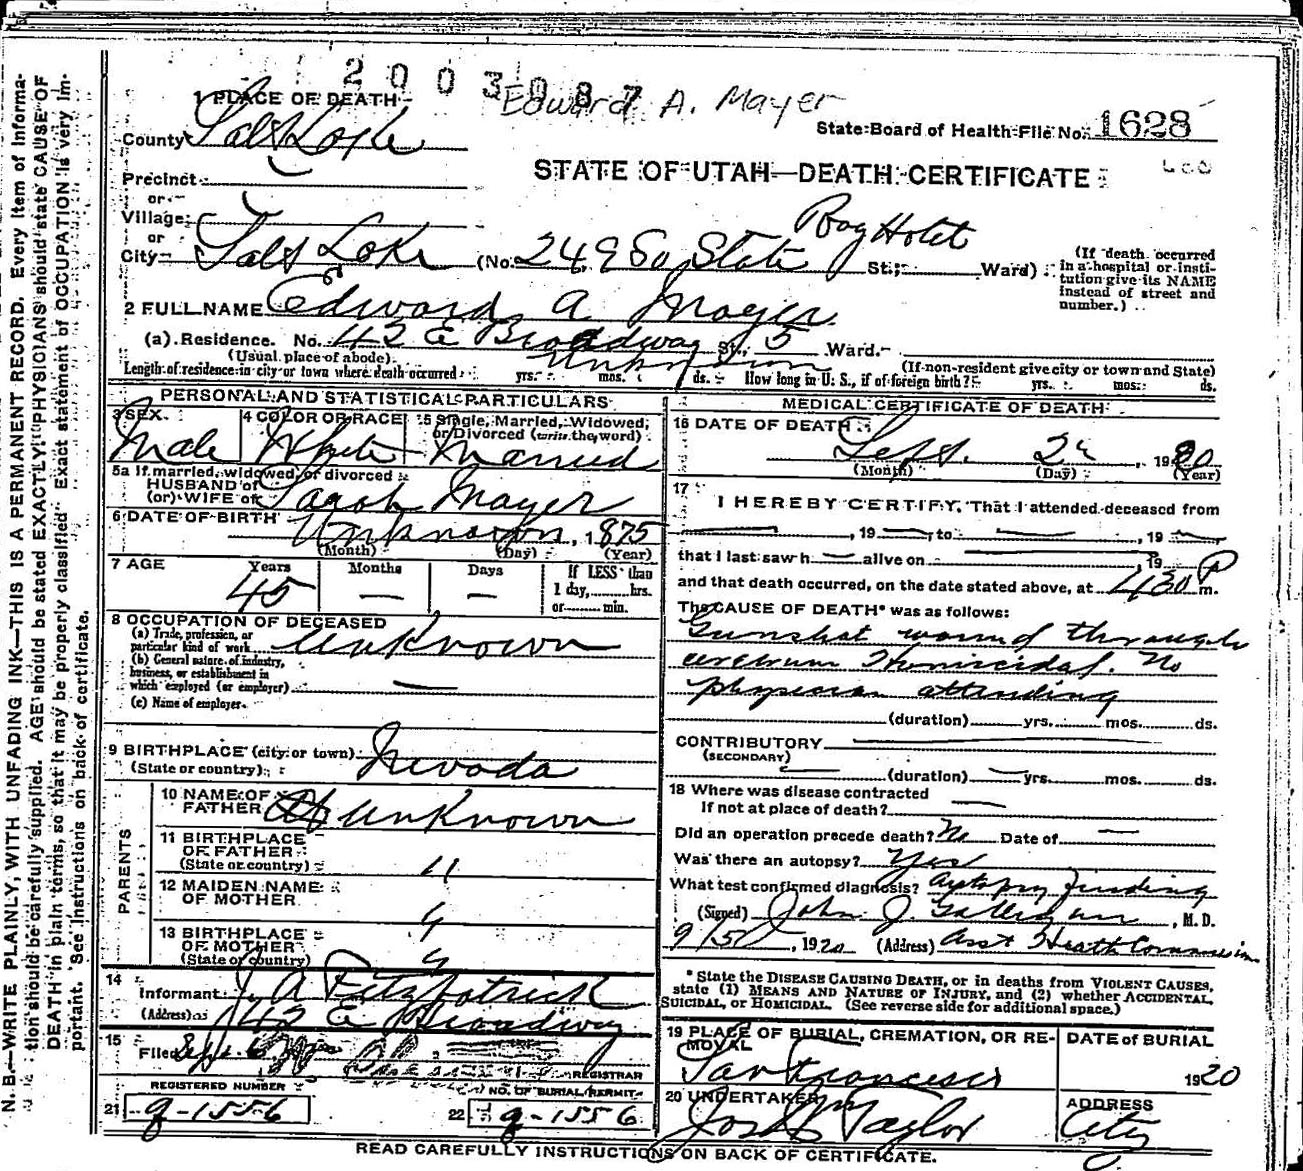 2003087
Edward A. Mayer
1 PLACE OF DEATH
State Board of Health File No. 1628
County Salt Lake
STATE OF UTAH—DEATH CERTIFICATE
Precinct
or
Village
or
Ray Hotel
City Salt Lake (No. 249 So State St.; Ward)
(If death occurred in a hospital or institution give its NAME instead of street and number.)
2 FULL NAME Edward A Mayer
(a) Residence. No. 42 E Broadway St., 5 Ward.
(Usual place of abode) (If non-resident give city or town and State)
Length of residence in city or town where death occurred Unknown yrs. mos. ds. How long in U. S., if of foreign birth? yrs. mos. ds.
PERSONAL AND STATISTICAL PARTICULARS
3 SEX Male
4 COLOR OR RACE White
5 Single, Married, Widowed, or Divorced (write the word) Married
5a If married, widowed, or divorced
HUSBAND of
(or) WIFE of Sarah Mayer
6 DATE OF BIRTH Unknown, 1875
(Month) (Day) (Year)
7 AGE Years Months Days If LESS than
45 — — 1 day, hrs.
or min.
8 OCCUPATION OF DECEASED
(a) Trade, profession, or
particular kind of work Unknown
(b) General nature of industry,
business, or establishment in
which employed (or employer) —
(c) Name of employer
9 BIRTHPLACE (city or town) Nevada
(State or country)
PARENTS
10 NAME OF
FATHER Unknown
11 BIRTHPLACE
OF FATHER
(State or country) "
12 MAIDEN NAME
OF MOTHER "
13 BIRTHPLACE
OF MOTHER
(State or country) "
14
Informant J. A Fitzpatrick
(Address) 42 E Broadway
15
Filed Sept
REGISTRAR
REGISTERED NUMBER
NO. OF BURIAL PERMIT
21 q-1556
22 q-1556
MEDICAL CERTIFICATE OF DEATH
16 DATE OF DEATH
Sept. 1920
(Month) (Day) (Year)
17
I HEREBY CERTIFY, That I attended deceased from
—, 19— to —, 19—
that I last saw h— alive on —, 19
and that death occurred, on the date stated above, at 430 P m.
The CAUSE OF DEATH* was as follows:
Gunshot wound through
cerebrum Homicidal. No
physician attending
(duration) yrs. mos. ds.
CONTRIBUTORY —
(SECONDARY)
— (duration) — yrs. mos. ds.
18 Where was disease contracted
if not at place of death? —
Did an operation precede death? No Date of —
Was there an autopsy? Yes
What test confirmed diagnosis? Autopsy Finding
(Signed) John J. Galligan, M. D.
9/5, 1920 (Address) Asst Health Commission
* State the DISEASE CAUSING DEATH, or in deaths from VIOLENT CAUSES,
state (1) MEANS AND NATURE OF INJURY, and (2) whether ACCIDENTAL,
SUICIDAL, or HOMICIDAL. (See reverse side for additional space.)
19 PLACE OF BURIAL, CREMATION, OR RE-
MOVAL
San Francisco
DATE of BURIAL
1920
20 UNDERTAKER
Jos Wm Taylor
ADDRESS
City
READ CAREFULLY INSTRUCTIONS ON BACK OF CERTIFICATE.
N. B.—WRITE PLAINLY, WITH UNFADING INK—THIS IS A PERMANENT RECORD. Every item of informa-
tion should be carefully supplied. AGE should be stated EXACTLY. PHYSICIANS should state CAUSE OF
DEATH in plain terms, so that it may be properly classified. Exact statement of OCCUPATION is very im-
portant. See instructions on back of certificate.